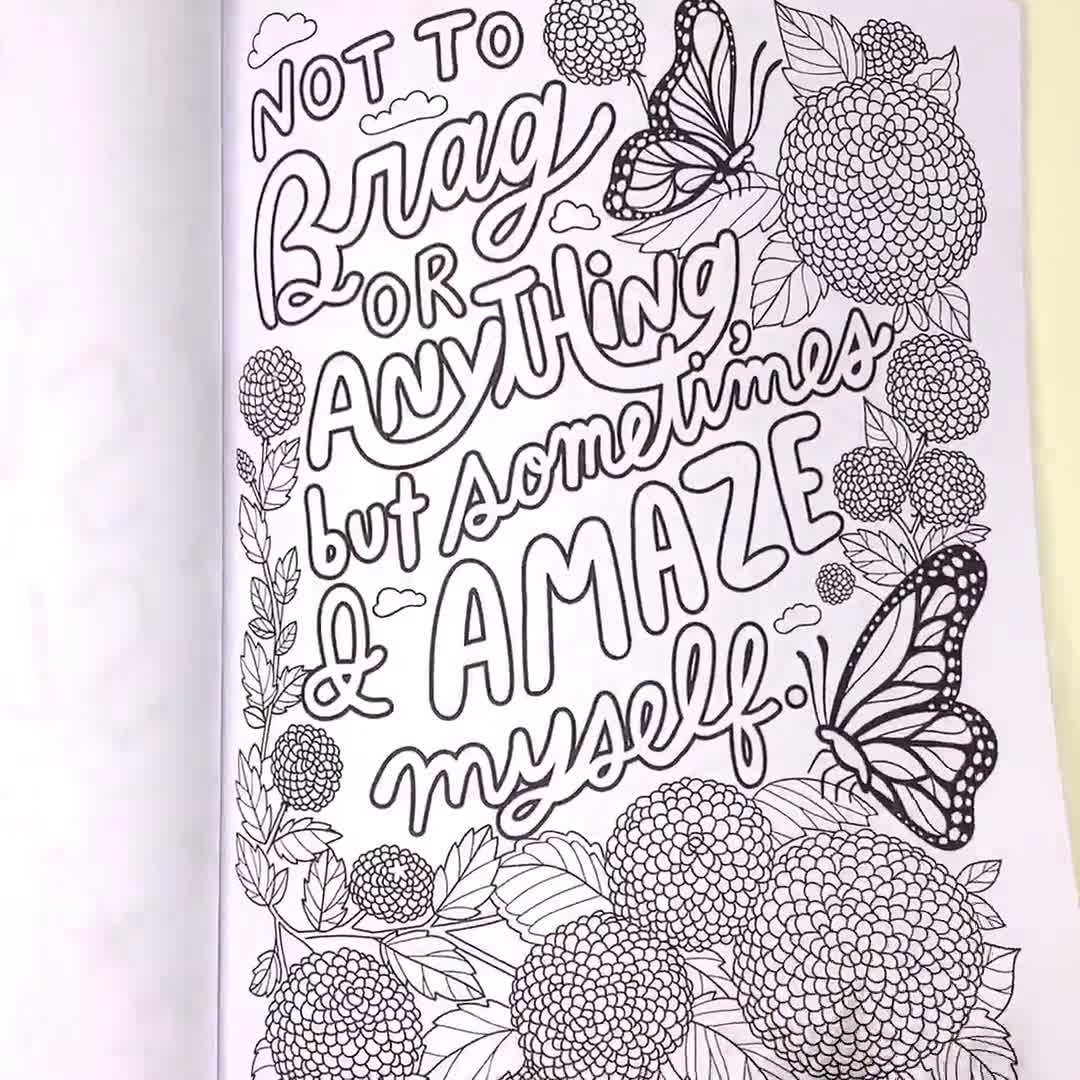 NOT TO
Brag
OR
ANYTHiNg,
but sometimes
I AMAZE
myself.